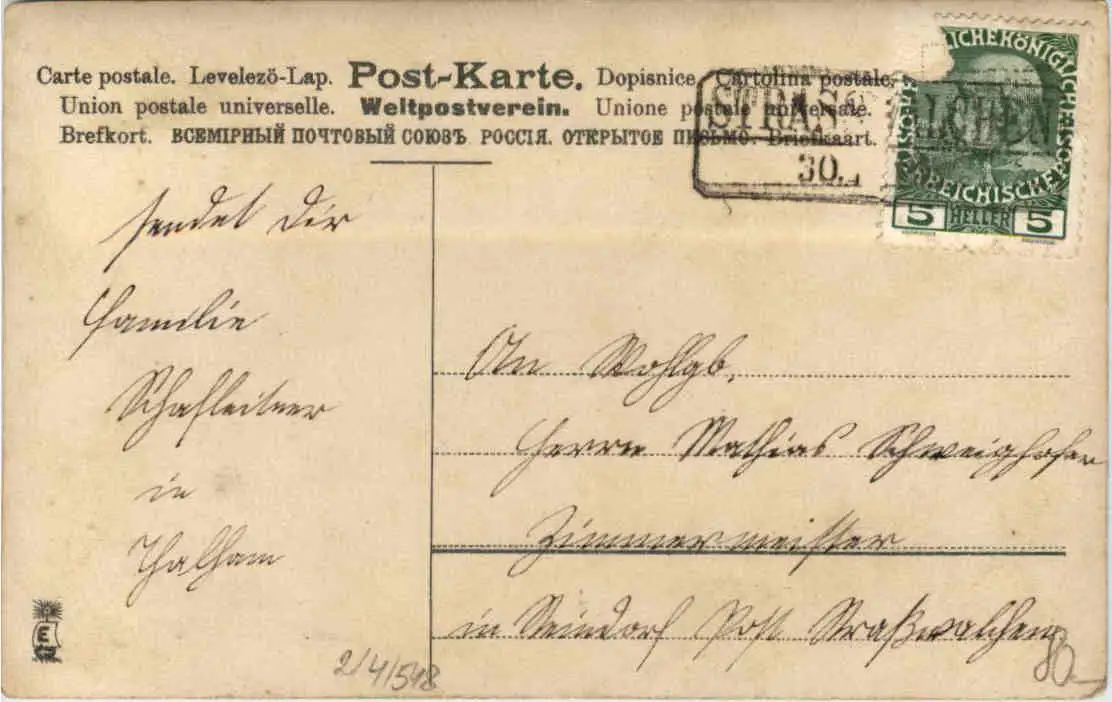 Carte postale. Levelezö-Lap. Post-Karte. Dopisnice. Cartolina postale.
Union postale universelle. Weltpostverein. Unione postale universale.
Brefkort. ВСЕМІРНЫЙ ПОЧТОВЫЙ СОЮЗЪ РОССІЯ. ОТКРЫТОЕ ПИСЬМО. Briefkaart.
STRASSWALCHEN
30.
LICHEKÖNIGLICHE
REICHISCHE
5 HELLER 5
sendet Dir
Familie
Schafleitner
in
Thalham
An Wohlgb.
Herrn Mathias Schweighofer
Zimmermeister
in Steindorf Post Straßwalchen
2/4/548
80
E